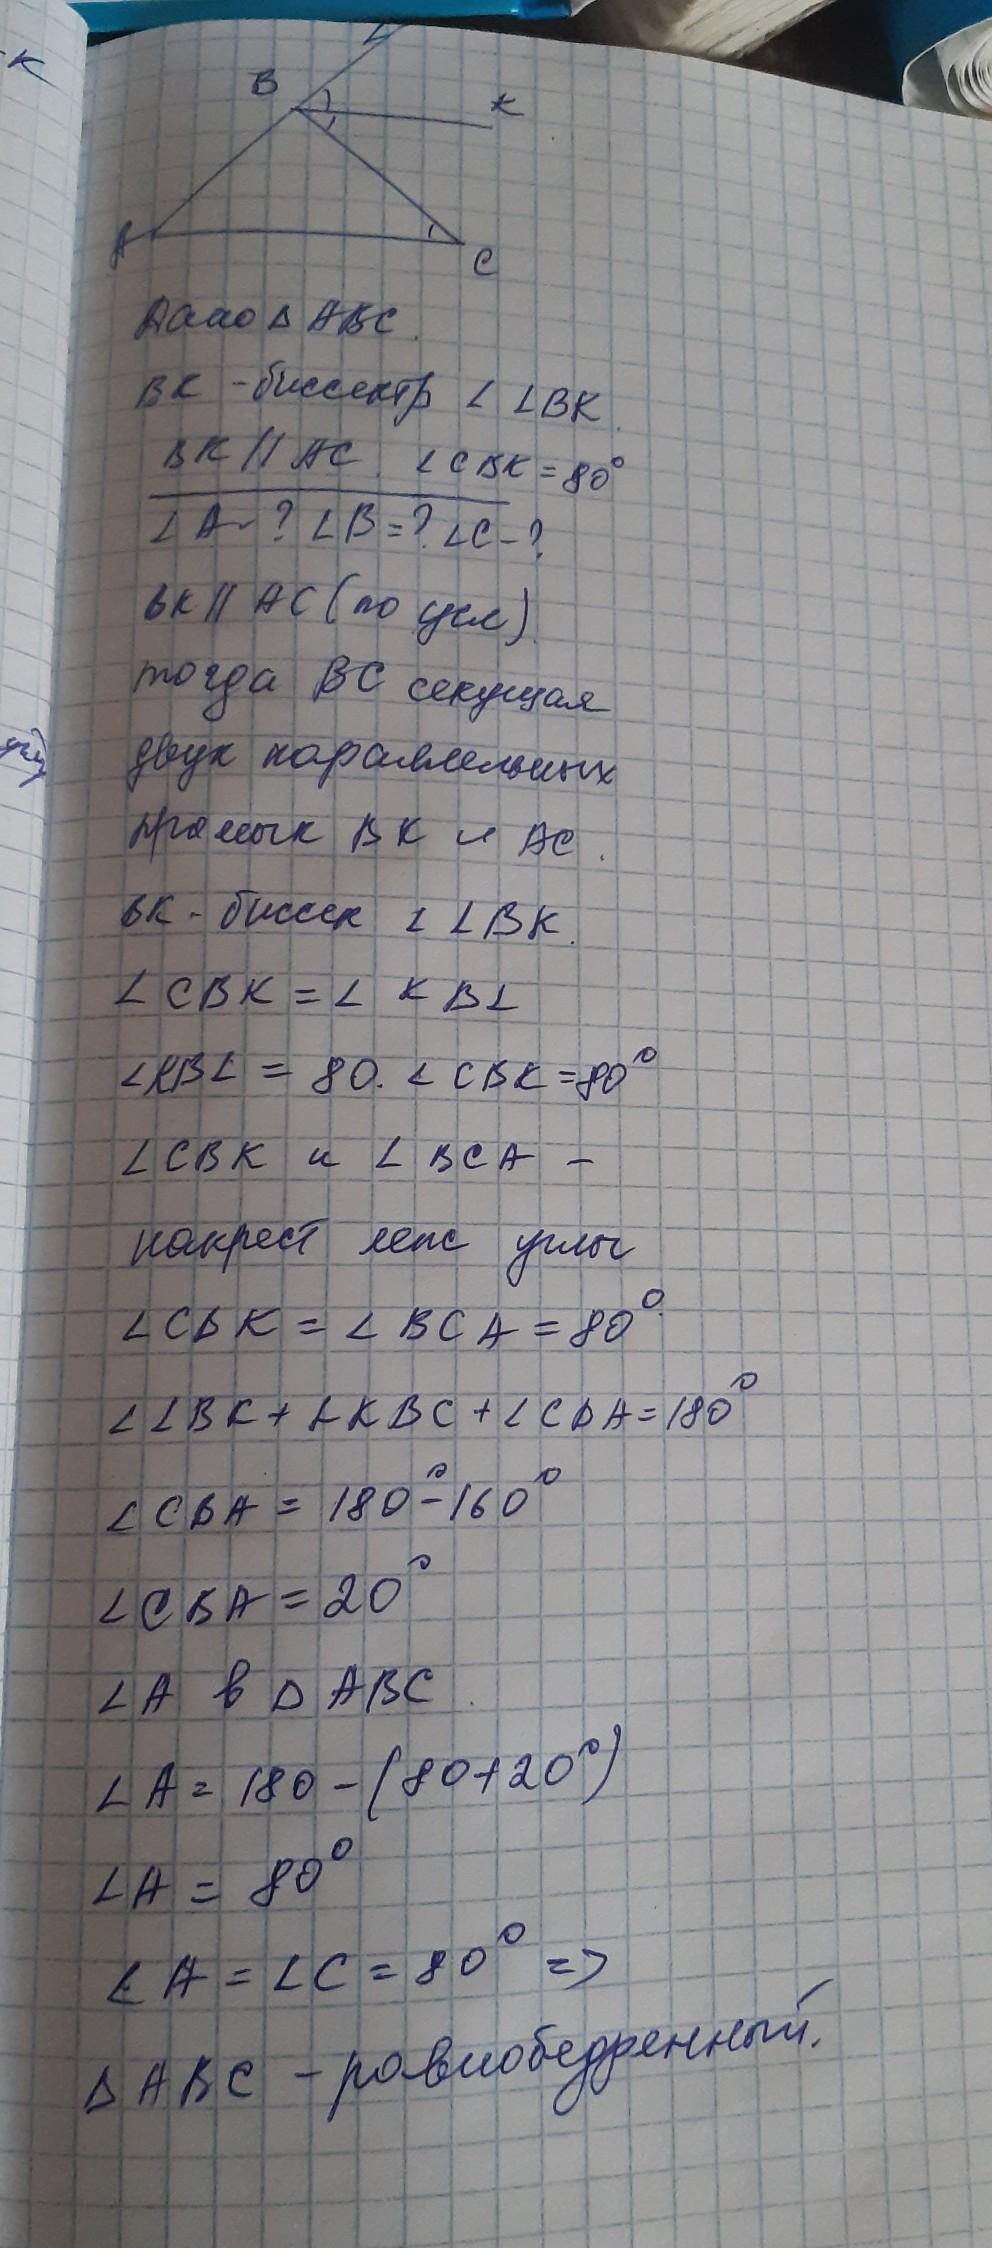 к
L
B
к
A
C
Дано Δ ABC.
BK - биссектр ∠ LBK.
BK // AC. ∠CBK = 80°
∠A - ? ∠B = ? ∠C - ?
BK // AC (по усл)
тогда BC секущая
двух параллельных
прямых BK и AC.
BK - биссек ∠ LBK.
∠CBK = ∠ KBL
∠KBL = 80. ∠CBK = 80°
∠CBK и ∠BCA -
накрест леж углы
∠CBK = ∠BCA = 80°
∠LBK + ∠KBC + ∠CBA = 180°
∠CBA = 180° - 160°
∠CBA = 20°
∠A в Δ ABC.
∠A = 180 - (80 + 20°)
∠A = 80°
∠A = ∠C = 80° =>
Δ ABC - равнобедренный.